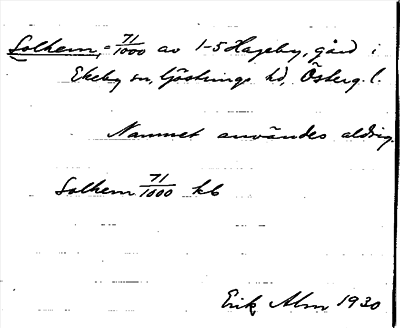 Solhem, = 71/1000 av 1-5 Hageby, gård i
Ekeby sn, Göstrings hd, Österg. l.
Namnet användes aldrig.
Solhem 71/1000 kb
Erik Alm 1930